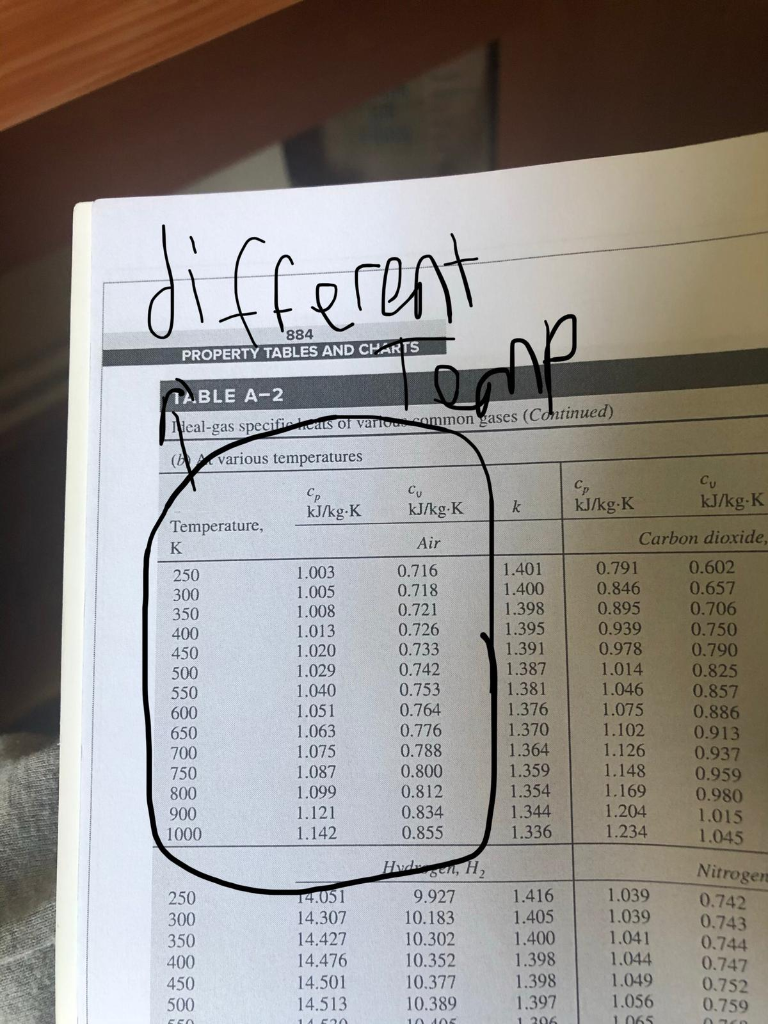 different
Temp
884
PROPERTY TABLES AND CHARTS
TABLE A–2
Ideal-gas specific heats of various common gases (Continued)
(b) At various temperatures
Temperature, K cp kJ/kg·K cv kJ/kg·K k cp kJ/kg·K cv kJ/kg·K
Air Carbon dioxide,
250 1.003 0.716 1.401 0.791 0.602
300 1.005 0.718 1.400 0.846 0.657
350 1.008 0.721 1.398 0.895 0.706
400 1.013 0.726 1.395 0.939 0.750
450 1.020 0.733 1.391 0.978 0.790
500 1.029 0.742 1.387 1.014 0.825
550 1.040 0.753 1.381 1.046 0.857
600 1.051 0.764 1.376 1.075 0.886
650 1.063 0.776 1.370 1.102 0.913
700 1.075 0.788 1.364 1.126 0.937
750 1.087 0.800 1.359 1.148 0.959
800 1.099 0.812 1.354 1.169 0.980
900 1.121 0.834 1.344 1.204 1.015
1000 1.142 0.855 1.336 1.234 1.045
Hydrogen, H2 Nitrogen
250 14.051 9.927 1.416 1.039 0.742
300 14.307 10.183 1.405 1.039 0.743
350 14.427 10.302 1.400 1.041 0.744
400 14.476 10.352 1.398 1.044 0.747
450 14.501 10.377 1.398 1.049 0.752
500 14.513 10.389 1.397 1.056 0.759